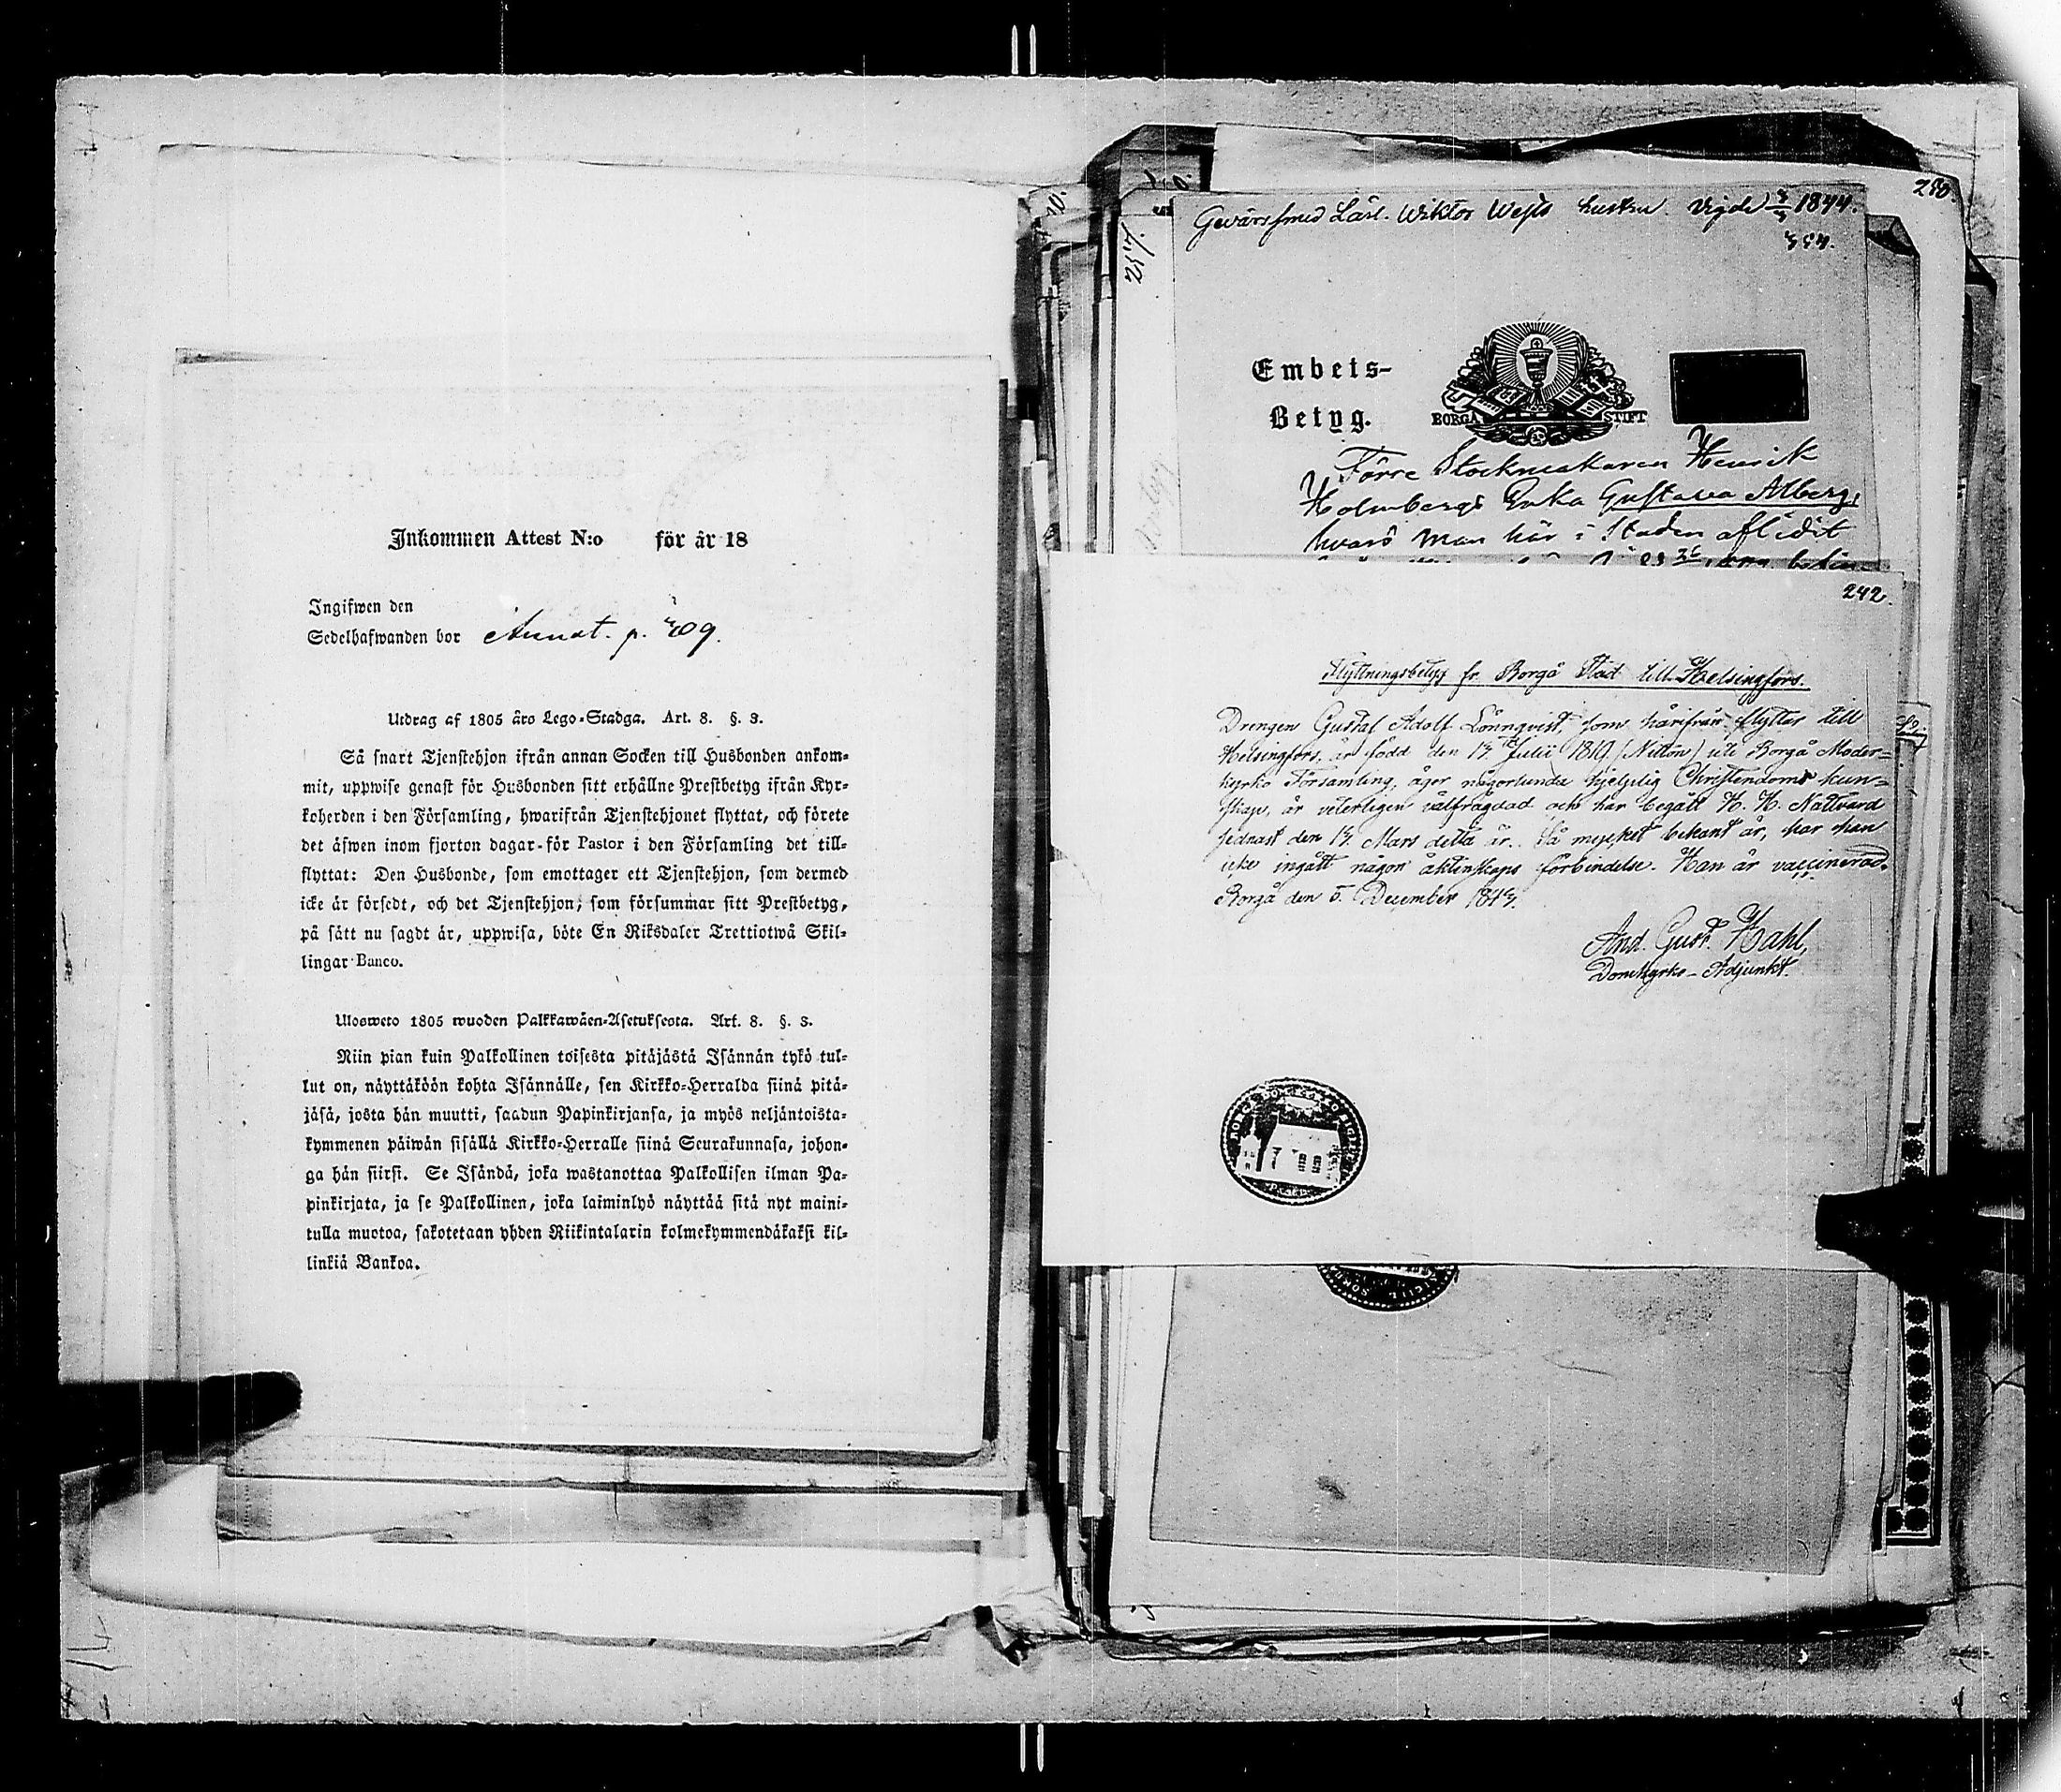 Inkommen Attest N:o för år 18
Ingifwen den
Sedelhafwanden bor Annot. p. 409.
Utdrag af 1805 års Lego-Stadga. Art. 8. §. 3.
Så snart Tjenstehjon ifrån annan Socken till Husbonden ankom-
mit, uppwise genast för Husbonden sitt erhållne Prestbetyg ifrån Kyr-
koherden i den Församling, hwarifrån Tjenstehjonet flyttat, och förete
det äfwen inom fjorton dagar för Pastor i den Församling det till-
flyttat: Den Husbonde, som emottager ett Tjenstehjon, som dermed
icke är försedt, och det Tjenstehjon, som försummar sitt Prestbetyg,
på sätt nu sagdt är, uppwisa, böte En Riksdaler Trettiotwå Skil-
lingar Banco.
Ulosweto 1805 wuoden Palkkawäen-Asetuksesta. Art. 8. §. 3.
Niin pian kuin Palkollinen toisesta pitäjästä Isännän tykö tul-
lut on, näyttäköön kohta Isännälle, sen Kirkko-Herralda siinä pitä-
jäsä, josta hän muutti, saadun Papinkirjansa, ja myös neljäntoista-
kymmenen päiwän sisällä Kirkko-Herralle siinä Seurakunnasa, johon-
ga hän siirsi. Se Isändä, joka wastanottaa Palkollisen ilman Pa-
pinkirjata, ja se Palkollinen, joka laiminlyö näyttää sitä nyt maini-
tulla muotoa, sakotetaan yhden Riikintalarin kolmekymmendäkaksi kil-
linkiä Bankoa.
280.
Gevärssmed Lärl. Wiktor hustru. Vigde 1844.
Embets-
Betyg.
BORGÅ STIFT
Förre Stockmakaren Henrik
Holmbergs Enka Gustava Alberg,
hvars man här i Staden aflidit
242.
Flyttningsbetyg fr. Borgå Stad till Helsingfors.
Drengen Gustaf Adolf Lönnqvist, som härifrån flyttar till
Helsingfors, är född den Julii 1819 (Nitton) uti Borgå Moder-
kyrko Församling, äger någorlunda hjelplig Christendoms kun-
skap, är veterligen välfrägdad och har begått H. H. Nattvard
sednast den Mars detta år. Så mycket bekant är, har han
icke ingått någon äktenskaps förbindelse. Han är vaccinerad.
Borgå den 5. December
And. Gust. Hahl,
Domkyrko-Adjunkt.